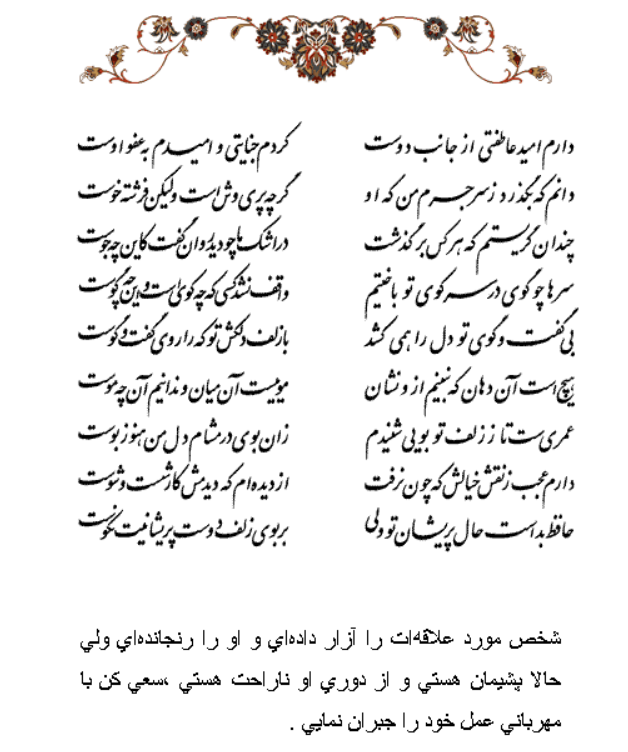 دارم امید عاطفتی از جانب دوست کردم جنایتی و امیدم به عفو اوست
دانم که بگذرد ز سر جرم من که او گرچه پری وش است ولیکن فرشته خوست
چندان گریستم که هر کس بر گذشت در اشک ما چو دید روان گفت کاین چه جوست
سرها چو گوی در سر کوی تو باختیم واقف نشد کسی که چه کوی است و این چه گوست
بی گفت و گوی تو دل را همی کشد با زلف دلکش تو که را روی گفت و گوست
هیچ است آن دهان که نبینم از و نشان موییست آن میان و ندانیم آن چه موست
عمری ست تا ز زلف تو بویی شنیدم زان بوی در مشام دل من هنوز بوست
دارم عجب ز نقش خیالش که چون نرفت از دیده ام که دیدمش کار شست و شوست
حافظ بد است حال پریشان تو ولی بر بوی زلف دوست پریشانیت نکوست
شخص مورد علاقه‌ات را آزار داده‌اي و او را رنجانده‌اي ولي
حالا پشيمان هستي و از دوري او ناراحت هستي ،سعي كن با
مهرباني عمل خود را جبران نمايي .